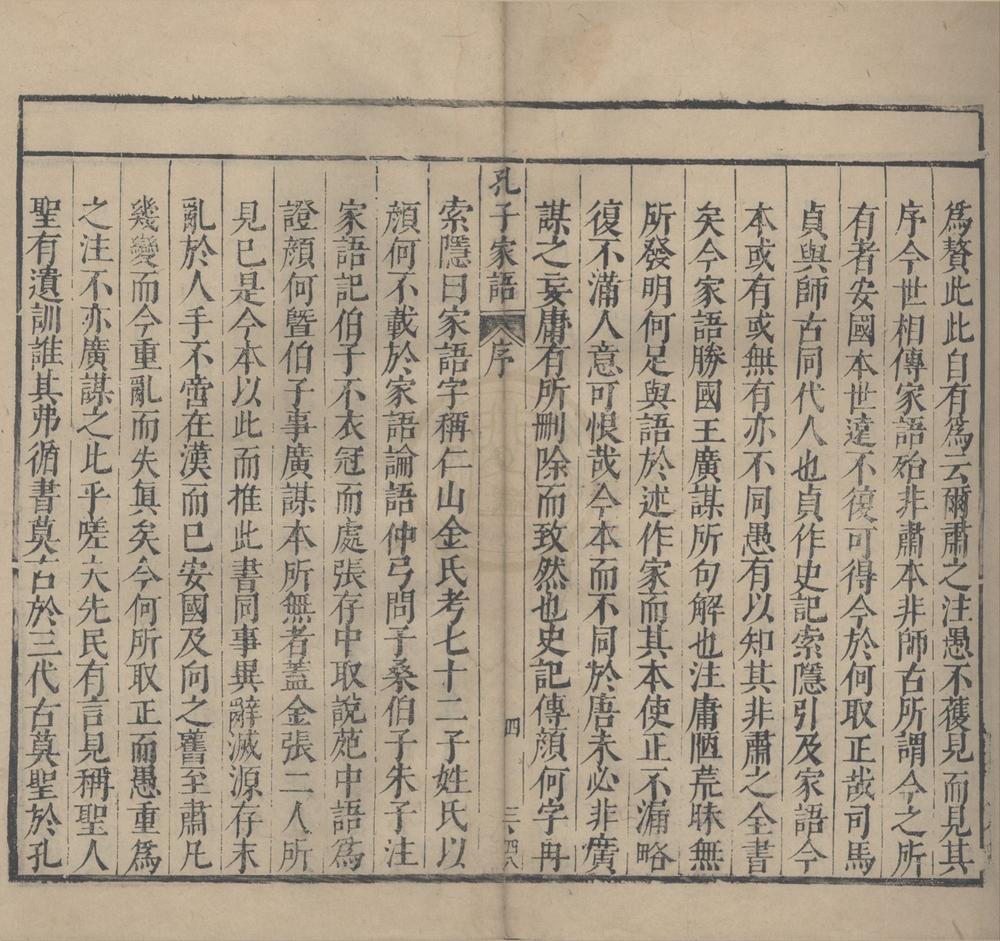 為贅此此自有為云爾肅之注愚不獲見而見其
序今世相傳家語殆非肅本非師古所謂今之所
有者安國本世遠不復可得今於何取正哉司馬
貞與師古同代人也貞作史記索隱引及家語今
本或有或無有亦不同愚有以知其非肅之全書
矣今家語勝國王廣謀所句解也注庸陋荒昧無
所發明何足與語於述作家而其本使正不漏略
復不滿人意可恨哉今本而不同於唐未必非廣
謀之妄庸有所刪除而致然也史記傳顏何字冉
孔子家語 序 四 三、四八
索隱曰家語字稱仁山金氏考七十二子姓氏以
顏何不載於家語論語仲弓問子桑伯子朱子注
家語記伯子不衣冠而處張存中取說苑中語為
證顏何曁伯子事廣謀本所無者蓋金張二人所
見已是今本以此而推此書同事異辭滅源存末
亂於人手不啻在漢而已安國及向之舊至肅凡
幾變而今重亂而失眞矣今何所取正而愚重為
之注不亦廣謀之比乎嗟夫先民有言見稱聖人
聖有遺訓誰其弗循書莫古於三代古莫聖於孔